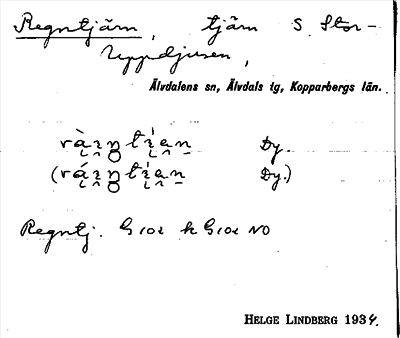 Regntjärn, tjärn S. Stor-
Uppdjusen,
Älvdalens sn, Älvdals tg, Kopparbergs län.
Dy.
Dy.)
Regntj. G 102 k G 102 NO
HELGE LINDBERG 1934.